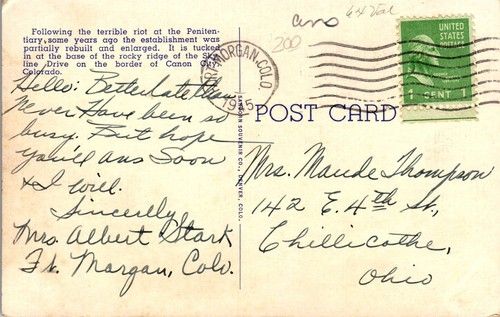 Following the terrible riot at the Peniten-
tiary, some years ago the establishment was
partially rebuilt and enlarged. It is tucked
in at the base of the rocky ridge of the Sky-
line Drive on the border of Canon City,
Colorado.
Hello: Better Late Than
Never Have been so
busy. But hope
you'll ans Soon
& I will.
Sincerelly,
Mrs. Albert Stark
Ft. Morgan, Colo.
SANBORN SOUVENIR CO., DENVER, COLO.
ans
200
FORT MORGAN, COLO.
1945
UNITED
STATES
POSTAGE
1 CENT 1
POST CARD
Mrs. Maude Thompson
142 E. 4th St,
Chillicothe,
Ohio